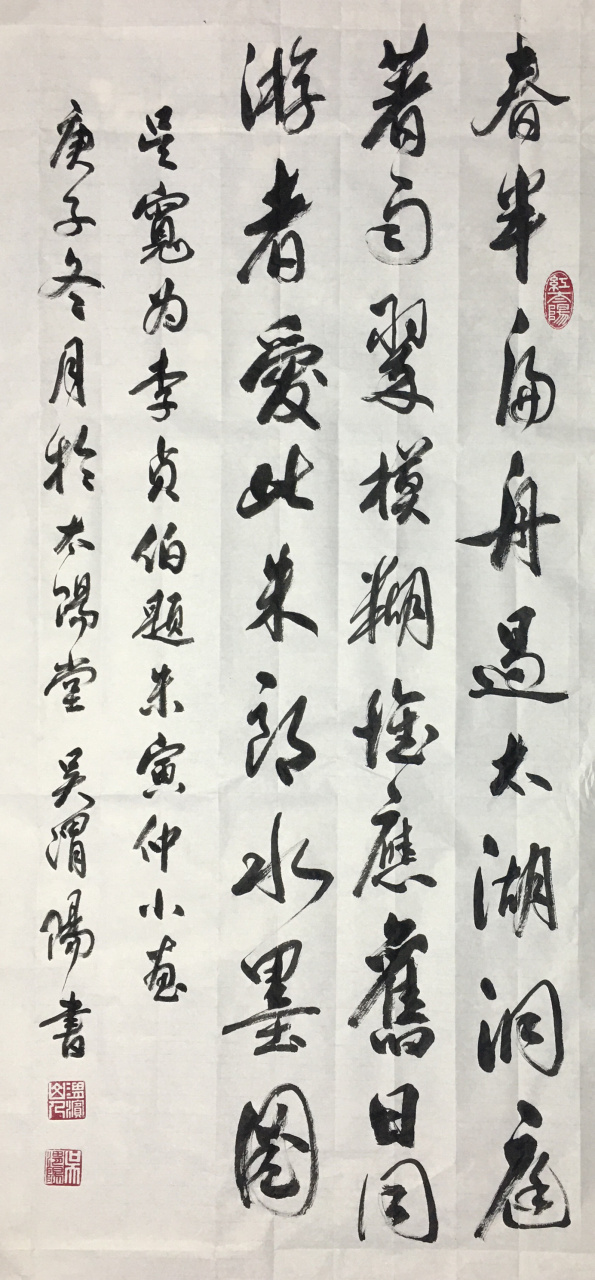 春半扁舟過太湖洞庭
著雨翠模糊惟應舊日同
游者愛此朱郎水墨圖
吴寬为李贞伯題朱寅仲小畫
庚子冬月於太陽堂 吴渭陽書
紅太陽